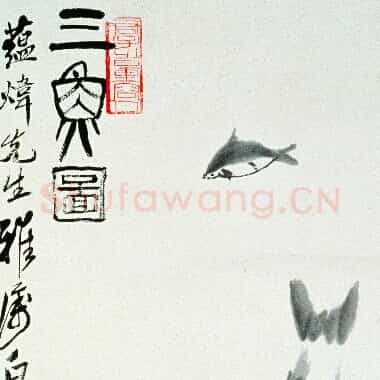 三魚圖
蘊煒先生雅屬白
Shufawang.CN